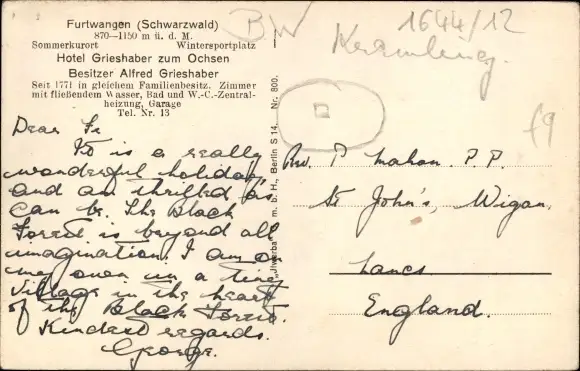 Furtwangen (Schwarzwald)
870—1150 m ü. d. M.
Sommerkurort Wintersportplatz
Hotel Grieshaber zum Ochsen
Besitzer Alfred Grieshaber
Seit 1771 in gleichem Familienbesitz. Zimmer
mit fließendem Wasser, Bad und W.-C.-Zentral-
heizung, Garage
Tel. Nr. 13
Dear Fr
It is a really
wonderful holiday
and am thrilled as
can be. The Black
Forest is beyond all
imagination. I am on
my own in a tiny
village in the heart
of the Black Forest.
Kindest regards.
George.
m. b. H., Berlin S 14. Nr. 800.
BW
1644/12
£9
Rev. P Mahon. P.P.
St John's, Wigan.
Lancs
England.